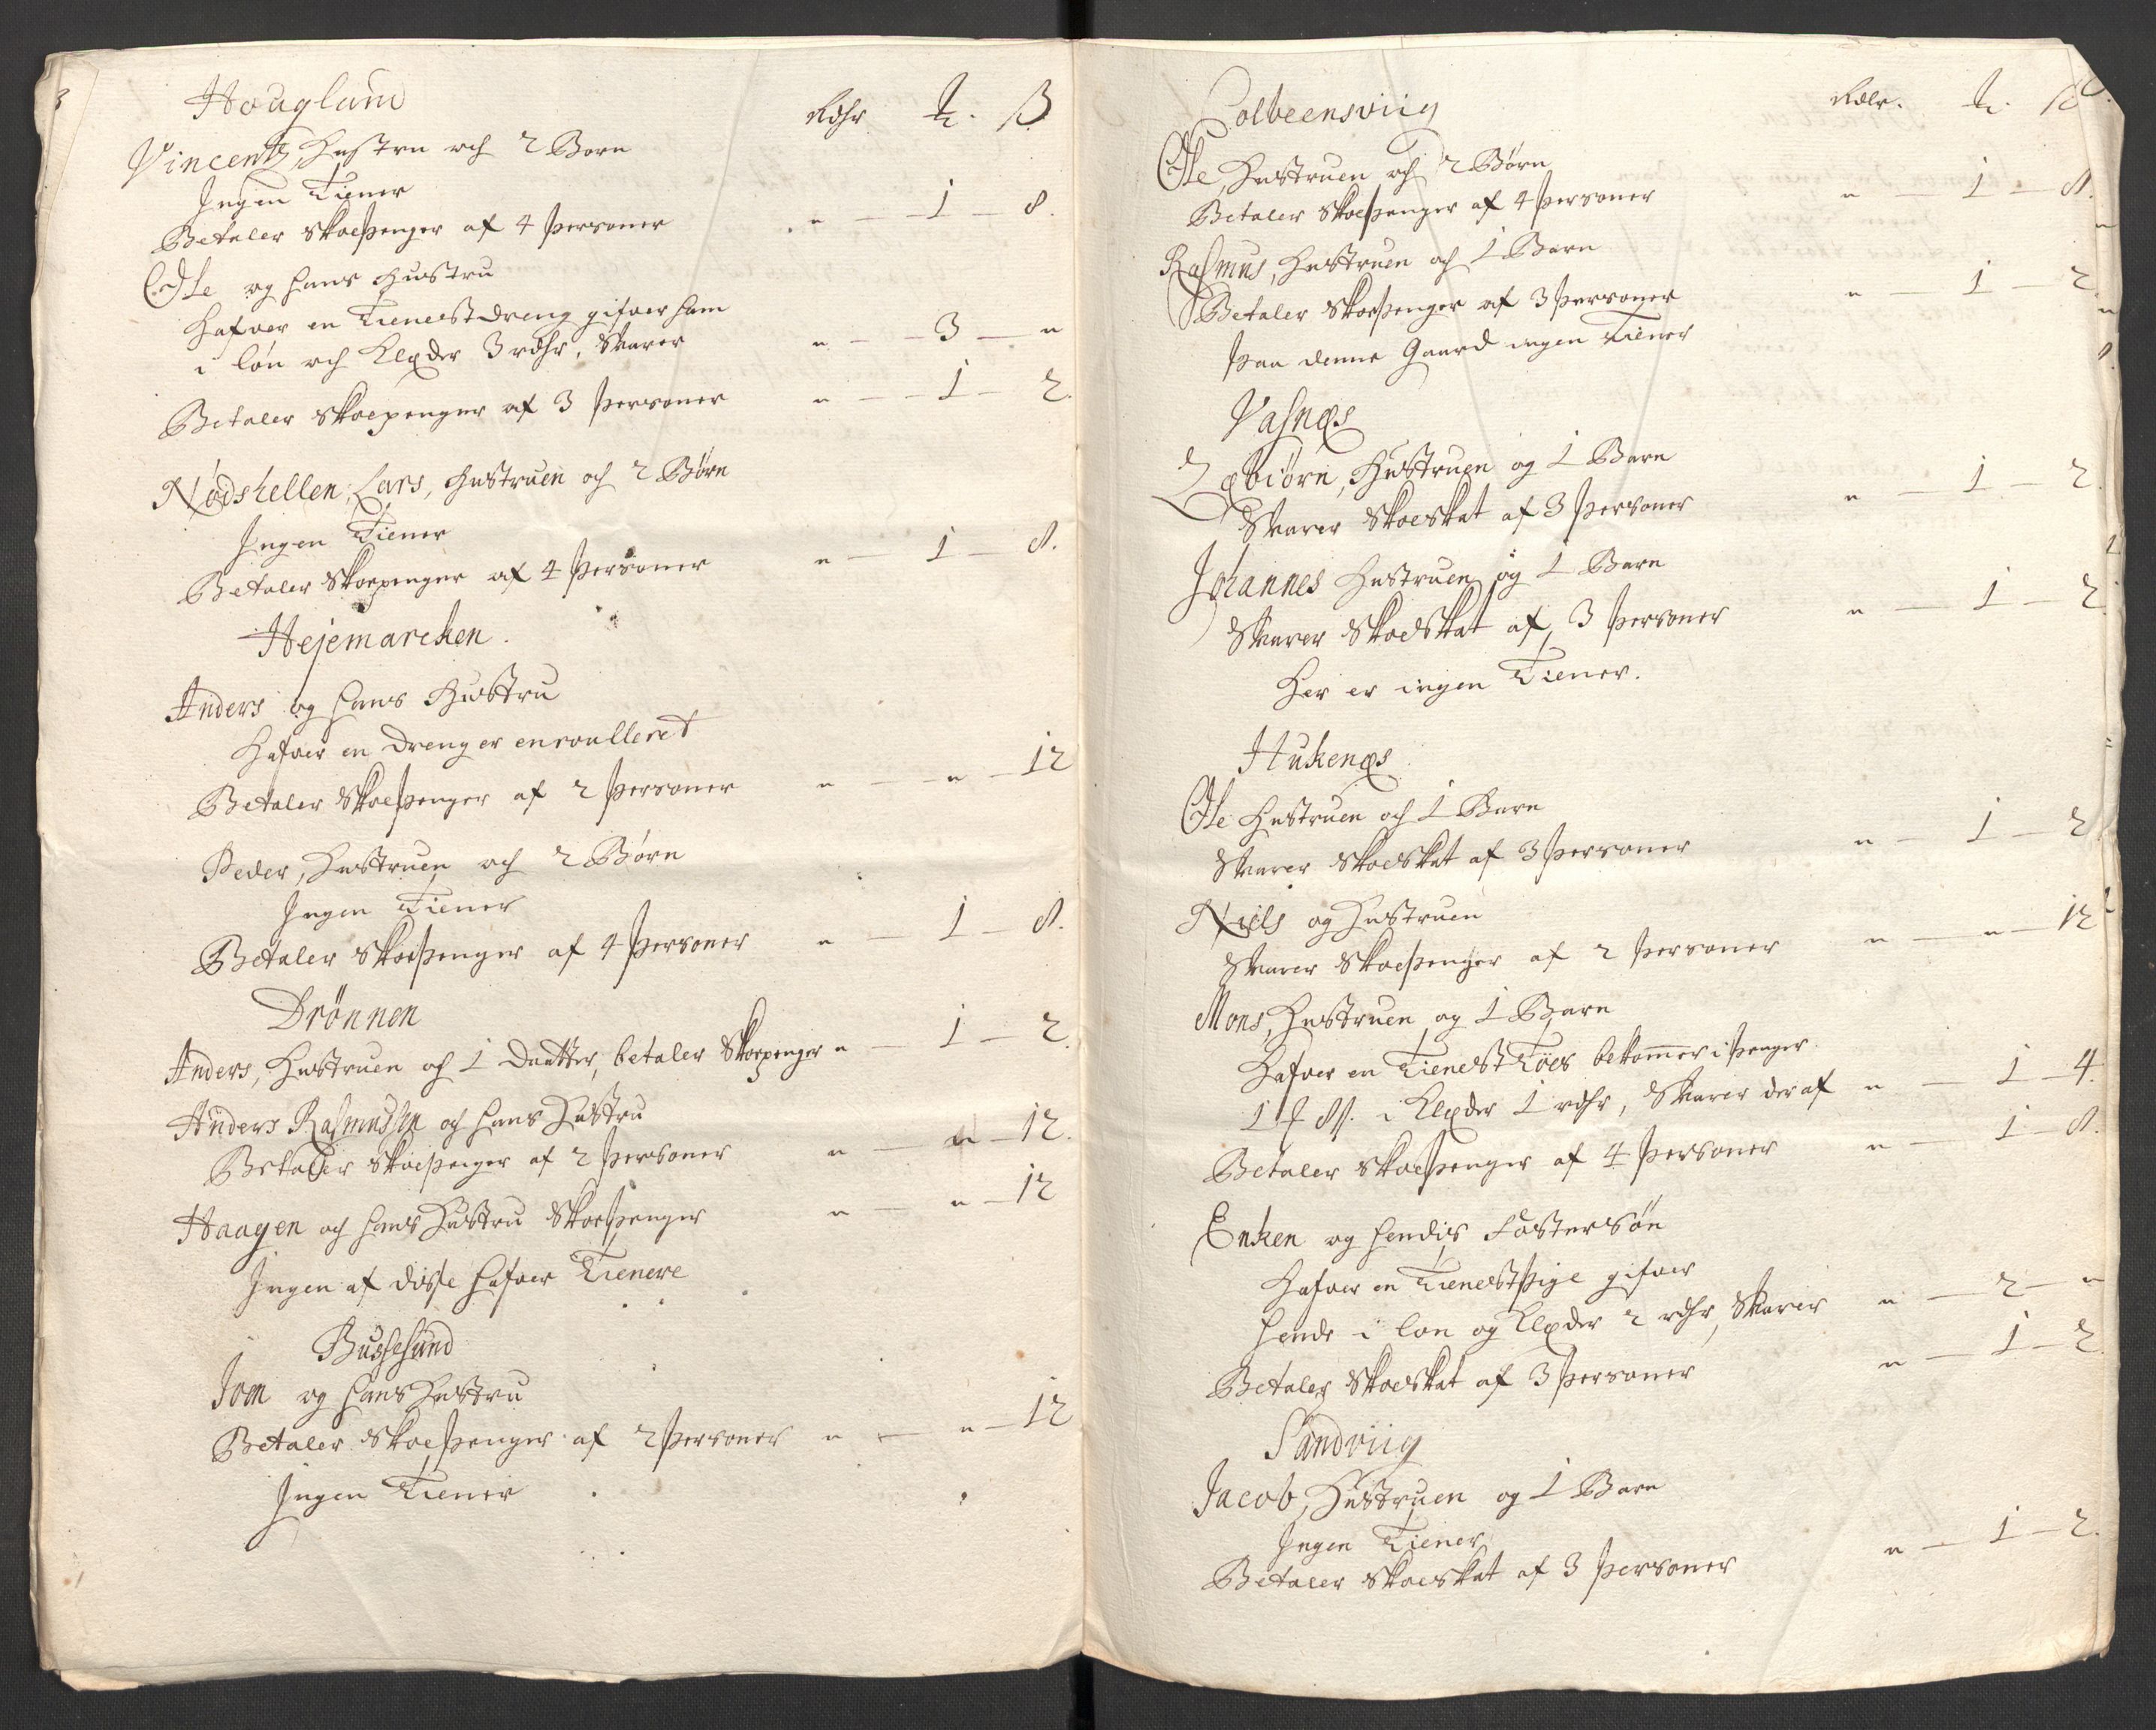 Houglum
Rdlr ₰. ß
Vincentz Hustru och 2 Born
Ingen Tiener
Betaler Skoepenger af 4 personer " — 1 — 8.
Ole og hans Hustru
Hafver en Tienestdreng gifver ham
i lön och Klæder 3 rdlr, Svarer " — 3 — "
Betaler Skoepenger af 3 personer " — 1 — 2.
Nodshellen, Lars, Hustruen och 2 Börn
Ingen Tiener
Betaler Skoepenger af 4 personer " — 1 — 8.
Hejemarcken.
Anders og hans Hustru
Hafver en Dreng er enroulleret
Betaler Skoepenger af 2 personer " — " — 12
Peder, Hustruen och 2 Börn
Ingen Tiener
Betaler Skoepenger af 4 personer " — 1 — 8.
Drönnen
Anders, Hustruen och 1 Daatter, betaler Skoepenger " — 1 — 2.
Anders Rasmussen och hans Hustru
Betaler Skoepenger af 2 personer " — " — 12.
Haagen och hans Hustru Skoepenger " — " — 12
Ingen af disse hafver Tienere
Bussesund
Jom og hans Hustru
Betaler Skoepenger af 2 personer " — " — 12
Ingen Tiener
Colbeensviig
Rdlr. ₰. ß
Ole, Hustruen och 2 Börn
Betaler Skoepenger af 4 personer " — 1 — 8.
Rasmus, Hustruen och 1 Barn
Betaler Skoepenger af 3 personer " — 1 — 2
paa denne Gaard ingen Tiener
Vasnæs
Esbiörn, Hustruen og 1 Barn
Svarer Skoeskat af 3 personer " — 1 — 2
Johannes Hustruen og 1 Barn
Svarer Skoeskat af 3 personer " — 1 — 2
Her er ingen Tiener.
Hukenæs
Ole Hustruen och 1 Barn
Svarer Skoeskat af 3 personer " — 1 — 2
Niels og Hustruen
Svarer Skoepenger af 2 personer " — " — 12
Mons, Hustruen og 1 Barn
Hafver en Tienest Töes bekommer i penger
1 ₰ 8 ß. i Klæder 1 rdlr, Svarer der af " — 1 — 4.
Betaler Skoepenger af 4 personer " — 1 — 8.
Enken og hendis Fostersön
Hafver en Tienestpige gifver
hende i lon og Klæder 2 rdlr, Svarer " — 2 — "
Betaler Skoeskat af 3 personer " — 1 — 2
Sandviig
Jacob, Hustruen og 1 Barn
Ingen Tiener
Betaler Skoeskat af 3 personer " — 1 — 2.